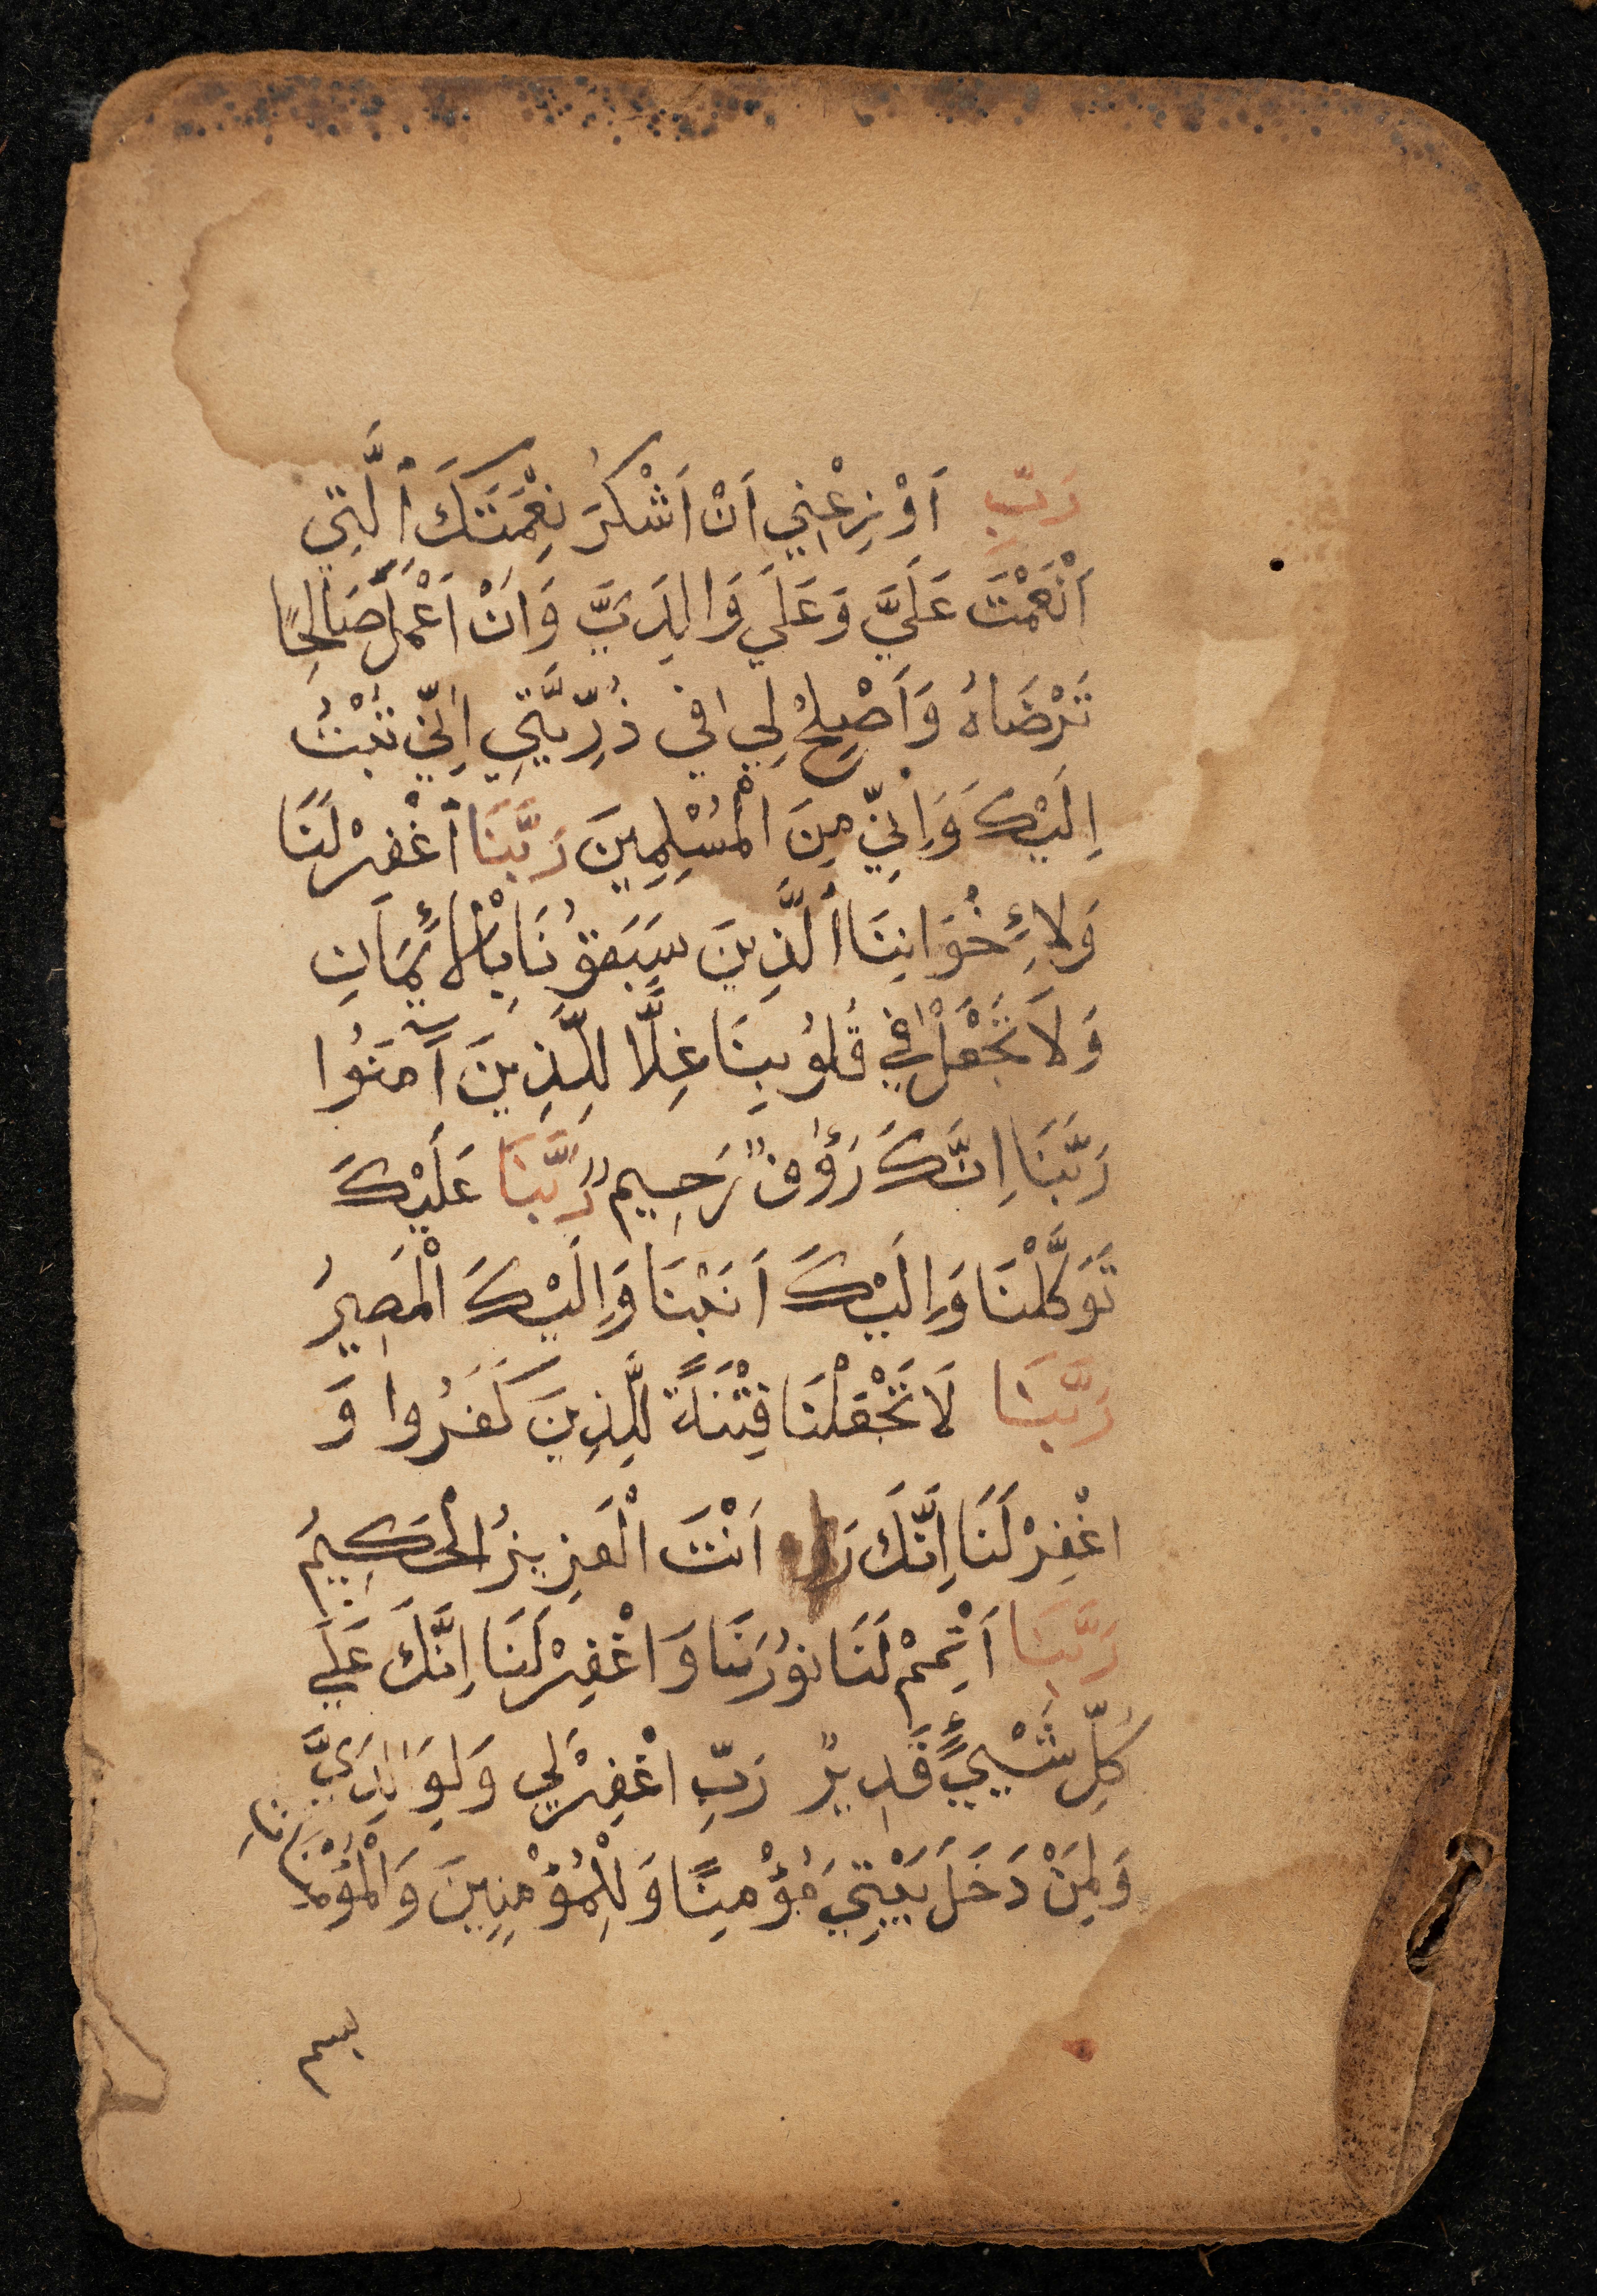 رَبِّ أَوْزِعْنِي اَنْ اَشْكُرَ نِعْمَتَكَ الَّتِي
اَنْعَمْتَ عَلَيَّ وَعَلَي وَالِدَيَّ وَاَنْ اَعْمَلَ صَالِحًا
تَرْضَاهُ وَاَصْلِحْ لِي فِي ذُرِّيَّتِي اِنِّي تُبْتُ
اِلَيْكَ وَاِنِّي مِنَ الْمُسْلِمِينَ رَبَّنَا اغْفِرْ لَنَا
وَلِاِخْوَانِنَا الَّذِينَ سَبَقُونَا بِالْاِيمَانِ
وَلَا تَجْعَلْ فِي قُلُوبِنَا غِلًّا لِلَّذِينَ آمَنُوا
رَبَّنَا اِنَّكَ رَؤُفٌ رَحِيمٌ رَبَّنَا عَلَيْكَ
تَوَكَّلْنَا وَاِلَيْكَ اَنَبْنَا وَاِلَيْكَ الْمَصِيرُ
رَبَّنَا لَا تَجْعَلْنَا فِتْنَةً لِلَّذِينَ كَفَرُوا وَ
اغْفِرْ لَنَا اِنَّكَ اَنْتَ الْعَزِيزُ الْحَكِيمُ
رَبَّنَا اَتْمِمْ لَنَا نُورَنَا وَاغْفِرْ لَنَا اِنَّكَ عَلَي
كُلِّ شَيْيءٍ قَدِيرٌ رَبِّ اغْفِرْ لِي وَلِوَالِدَيَّ
وَلِمَنْ دَخَلَ بَيْتِيَ مُؤْمِنًا وَلِلْمُؤْمِنِينَ وَالْمُؤْمِنَاتِ
بسم